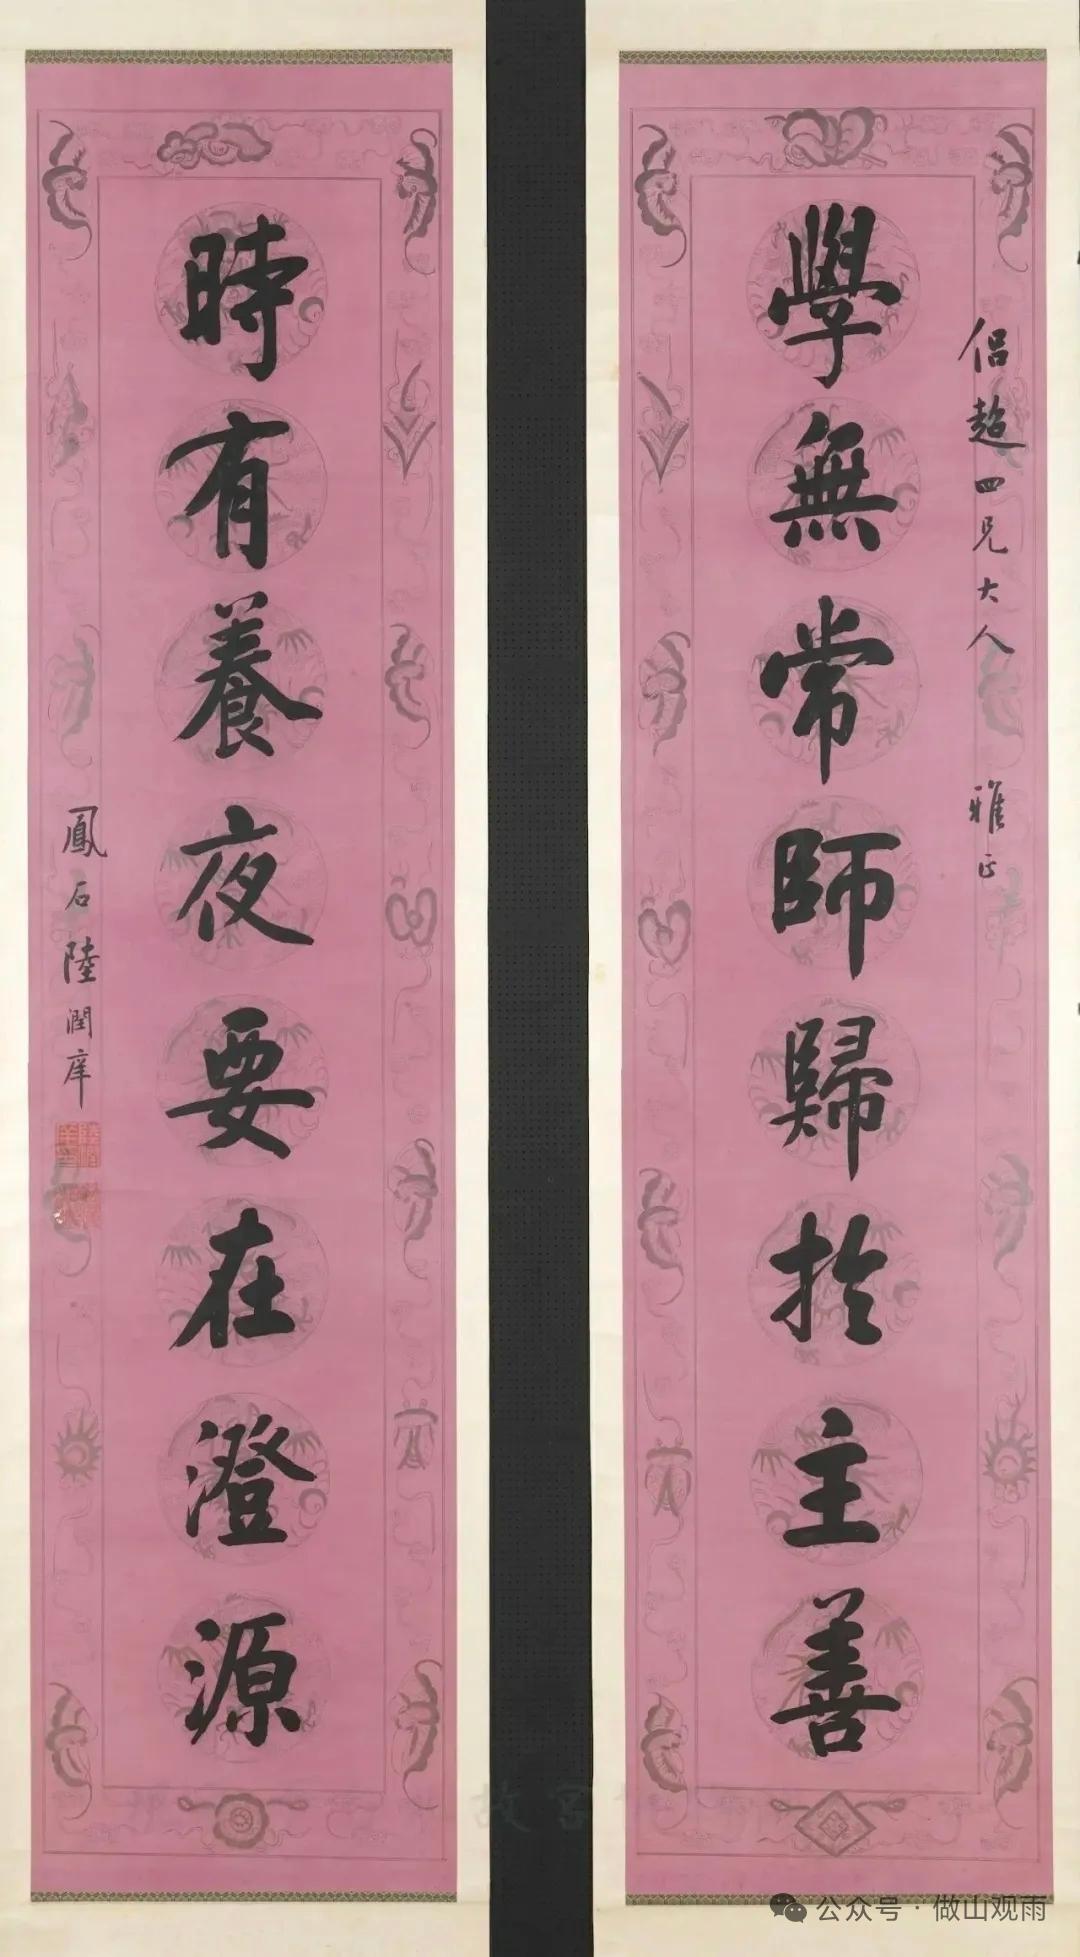 侣超四兄大人 雅正
學無常師歸於主善
時有養夜要在澄源
鳳石陸潤庠
公众号·做山观雨